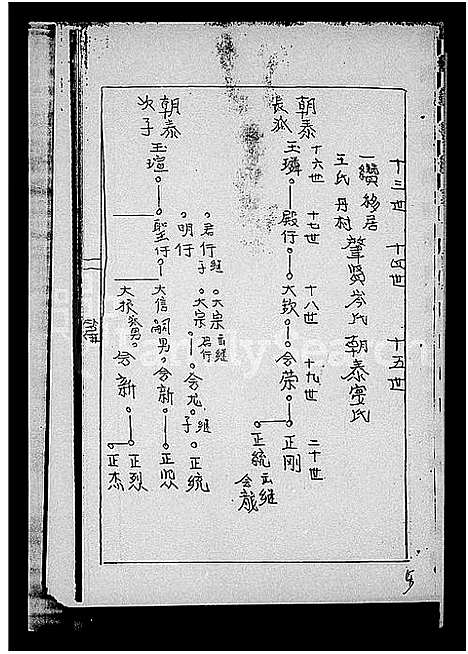 十三世 十四世 十五世
一纘移居 肇賢岑氏 朝泰寗氏
王氏丹村
朝泰長派
十六世 十七世 十八世 十九世 二十世
玉璘 殿行 大欽 會荣 正剛
正統 出繼會龍
朝泰次子
玉瑄 聖行 大信 嗣男會新 正愳
君行 繼子大宗
大宗 出繼君行
明行
會龙 繼子正統
大振 派男會新 正烈
正杰
5